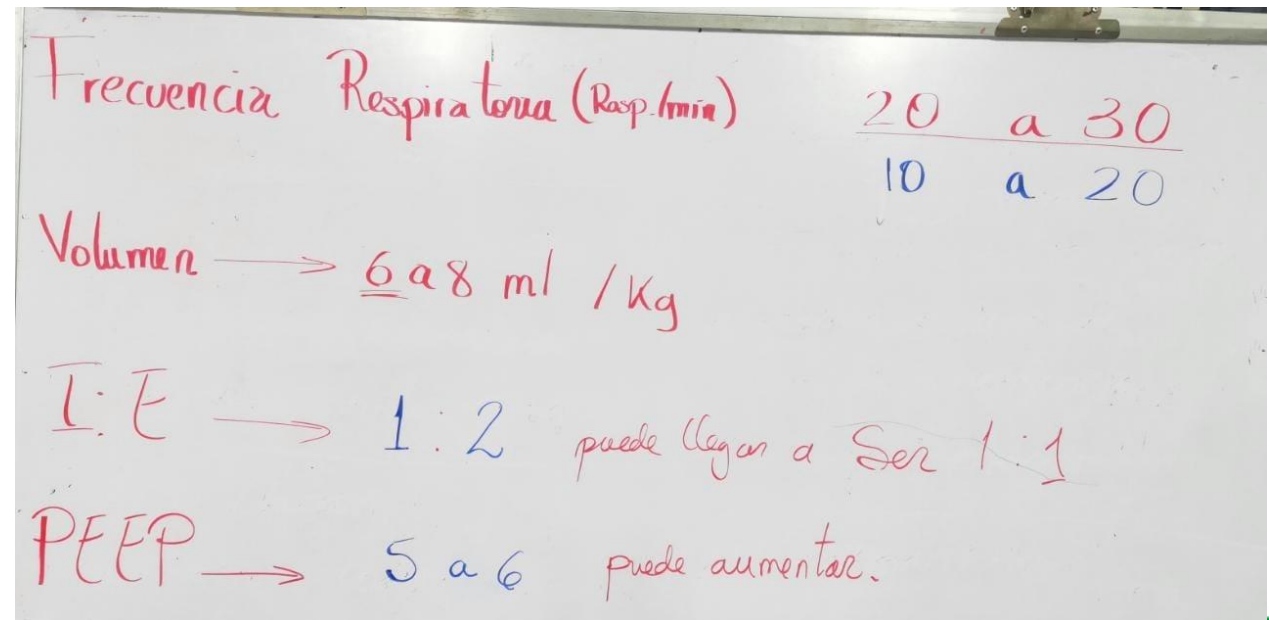 Frecuencia Respiratoria (Resp./min) 20 a 30
10 a 20
Volumen → 6 a 8 ml / Kg
I:E → 1:2 puede llegar a Ser 1:1
PEEP → 5 a 6 puede aumentar.